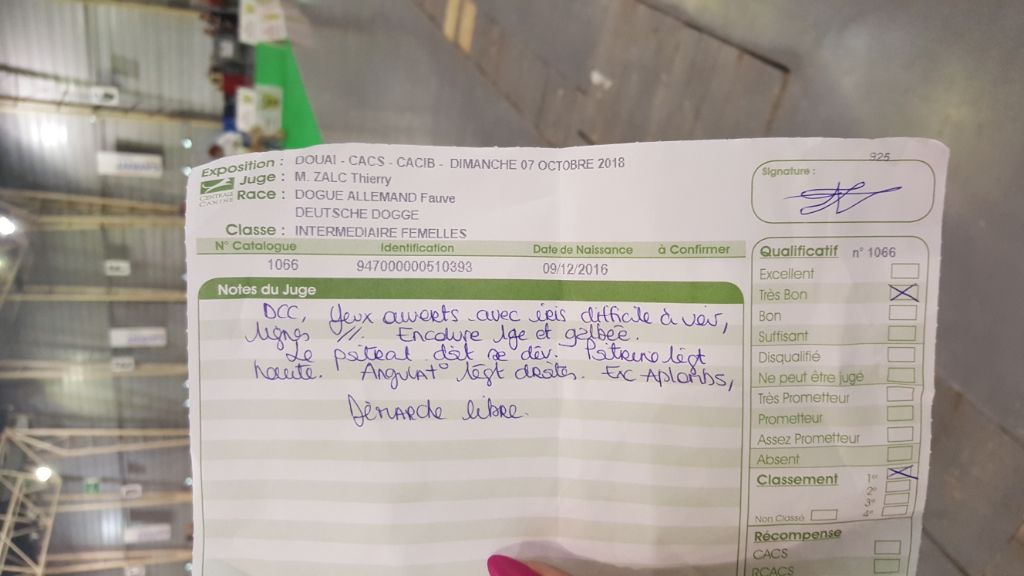 925
Exposition : DOUAI - CACS - CACIB - DIMANCHE 07 OCTOBRE 2018
Juge : M. ZALC Thierry
CENTRALE CANINE
Race : DOGUE ALLEMAND Fauve
DEUTSCHE DOGGE
Classe : INTERMEDIAIRE FEMELLES
Signature :
N° Catalogue Identification Date de Naissance à Confirmer
1066 947000000510393 09/12/2016
Notes du Juge
DCC, Yeux ouverts avec iris difficile à voir,
lignes //. Encolure lge et galbée.
Le poitrail doit se dév. Poitrine légt
haute. Angulat° légt droites. Exc Aplombs,
Démarche libre.
Qualificatif n° 1066
Excellent
Très Bon
Bon
Suffisant
Disqualifié
Ne peut être jugé
Très Prometteur
Prometteur
Assez Prometteur
Absent
Classement 1er
2e
3e
Non Classé 4e
Récompense
CACS
RCACS